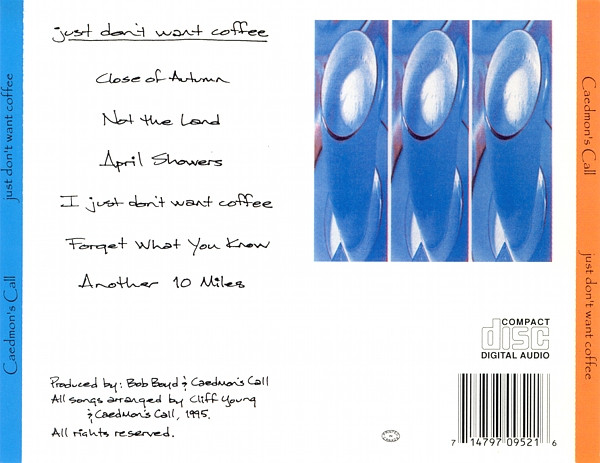 just don't want coffee
Close of Autumn
Not the Land
April Showers
I just don't want coffee
Forget What You Know
Another 10 Miles
Produced by: Bob Boyd & Caedmon's Call
All songs arranged by Cliff Young
& Caedmon's Call, 1995.
All rights reserved.
COMPACT
disc
DIGITAL AUDIO
7 14797 09521 6
Caedmon's Call
just don't want coffee
Caedmon's Call
just don't want coffee